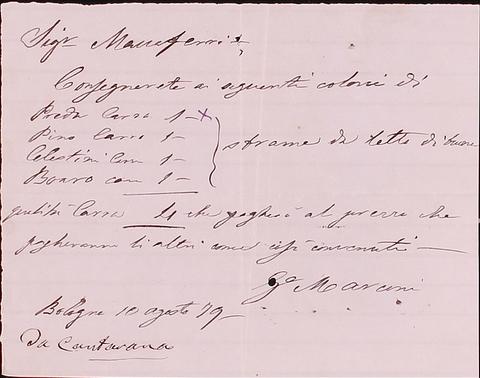 Sigr Manferrari
Consegnerete ai seguenti coloni di
Preda Carra 1 - x
Pino Carra 1 -
Celestini Carra 1 -
Boaro carra 1 -
strame da letto di buona
qualità Carra 4 che pagherò al prezzo che
pagheranno li altri come essi convenuti —
Ga Marconi
Bologna 10 agosto 79 -
Da Cantarana